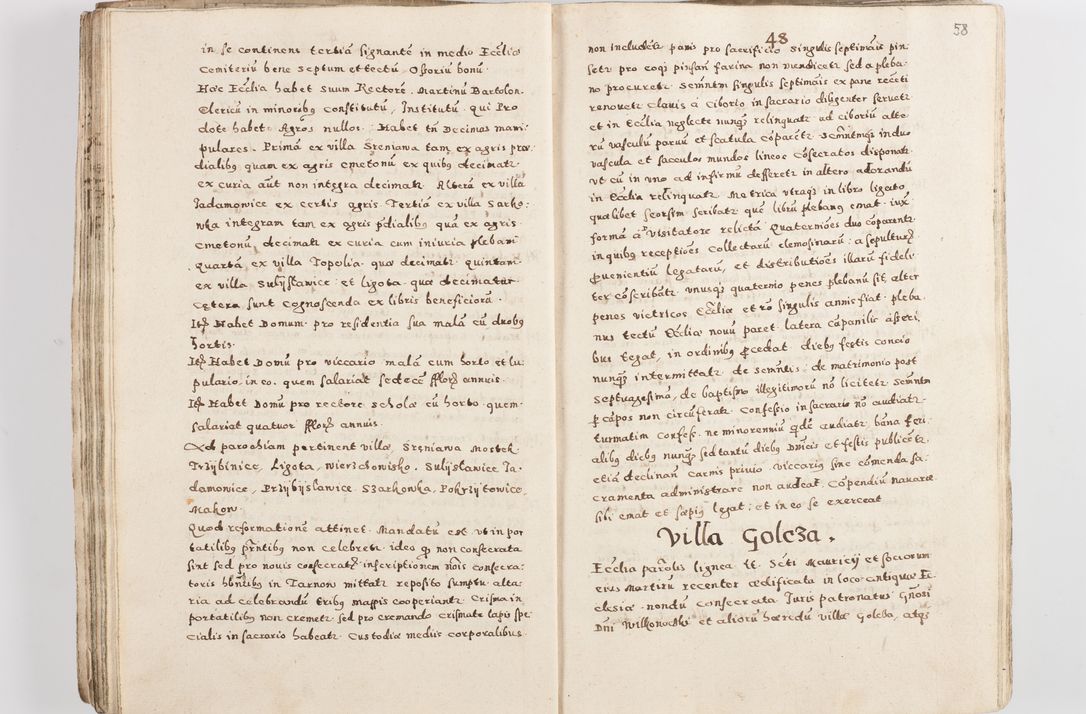 in se continent tertiā signantē in medio Eccliæ
Cemiteriū bene septum et tectū, Ossoriū bonū.
Hæc Ecclia habet suum Rectorē. Martinū Bartolon.
Clericū in minoribꝰ Constitutū, Institutū, qui Pro
dote habet Agros nullos. Habet tñ Decimas mani-
pulares. Primā ex villa Sreniawa tam ex agris præ
dialibꝰ quam ex agris cmetonū ex quibꝰ decimatr
ex curia aūt non integra decimatr Alterā ex villa
Jadamowice ex certis agris Tertiā ex villa Sarko:
wka integram tam ex agris p̄dialibꝰ quā ex agris
Cmetonū, decimatr ex curia cum iniuria plebani
Quartā ex villa Topolia quæ decimatr quintam
ex villa Sulyslawice et ligota quæ decimatur
Cętera sunt Cognoscenda ex libris beneficiorū.
Itē Habet Domum pro residentia sua malā cū duobꝰ
hortis.
Itē Habet Domū pro viccario malā cum horto et lu
pulario in eo. quem salariat sedecē fflorꝭ annuis.
Itē Habet Domū pro rectore scholæ cū horto quem
salariat quatuor fflorꝭ annuis.
Ad parochiam pertinent villæ, Sreniawa Mostek
Trzybinice, Ligota, Wierzchowisko, Sulyslawice Ja
damowice, Przybyslawice Szarkowka, Pokrzytowice,
Makow.
Quod reformationē attinet Mandatū est vt in por
tatilibꝰ pr̄ntibꝰ non celebretr ideo q̄ non consecrata
sint sed pro nouis consecratꝭ inscriptionem nois consecra:
toris hbn̄tibꝰ in Tarnow mittatr reposito sumptu. alta:
ria ad celebrandū tribꝰ mappis cooperiantr Crisma in
portatilibꝰ non cremetr sed pro cremando crismate lapis spe
cialis in sacrario habeatr Custodiæ mediæ corporalibus
48
58
non includētr panis pro sacrificio singulis septimāis pin
setr pro coqꝫ pinsan farina non mendicetr sed a pleba:
no procuretr Semn̄tm singulis septimāis ex pane recēti
renouetr Clauis a Ciborio in sacrario diligenter seruetr
et in Ecclia neglecte nunqꝫ relinquatr ad ciboriū alte
rū vasculū paruū et scatula cōparētr
vascula et sacculos mundos lineos Cōsecratos disponatr
vt cū in vno ad infirmū defferetr in altero adorandū
in Ecclia relinquatr Metrica vtraqꝫ in libro ligato
qualibet seorsim scribatr quē librū plebang emat iux̄
formā a Visitatore relictā Quaterniōes duo cōparentr
in quibꝰ receptiōes Collectarū elemosinarū: a sepulturꝭ
ꝓuenientiū legatarū, et distributiōes illarū fideli
ter cōscribātr vnusqꝫ quaternio penes plebanū sit, alter
penes vietricos Eccliæ et rō singulis annis fiat. pleba
nus tectū Eccliæ nouū paret latera cāpanilis āsseri
bus tegat, in ordinibꝰ ꝓcedat diebꝰ festis concio
nunqꝫ intermittatr de semn̄tis: de matrimonio post
Septuagesimā, de baptismo illegitimorū nō licitetr Semn̄tm
ꝑ cāpos non circūferatr Confessio in sacrario nō audiatr
turmatim Confess. ne minorenniū qdē audiatr bāna feri
alibꝰ diebꝰ nunqꝫ sed tantū diebꝰ Dn̄icis et festis publicētr
etiā declinan Carnis priuio viccariꝰ sine cōmenda sa:
cramenta administrare non audeat Cōpendiū nauaræ
sibi emat et sæpiꝰ legat: et in eo se exerceat
Villa Golcza.
Ecclia paroīis lignea tt. Scti Mauricij et sociorum
eius Martirū recenter ædificata in loco antiquæ Ec
clesiæ nondū Consecrata Juris patronatus Gn̄osi
Dn̄i Wilkowski et aliorū hæredū villæ Golcza, atqꝫ